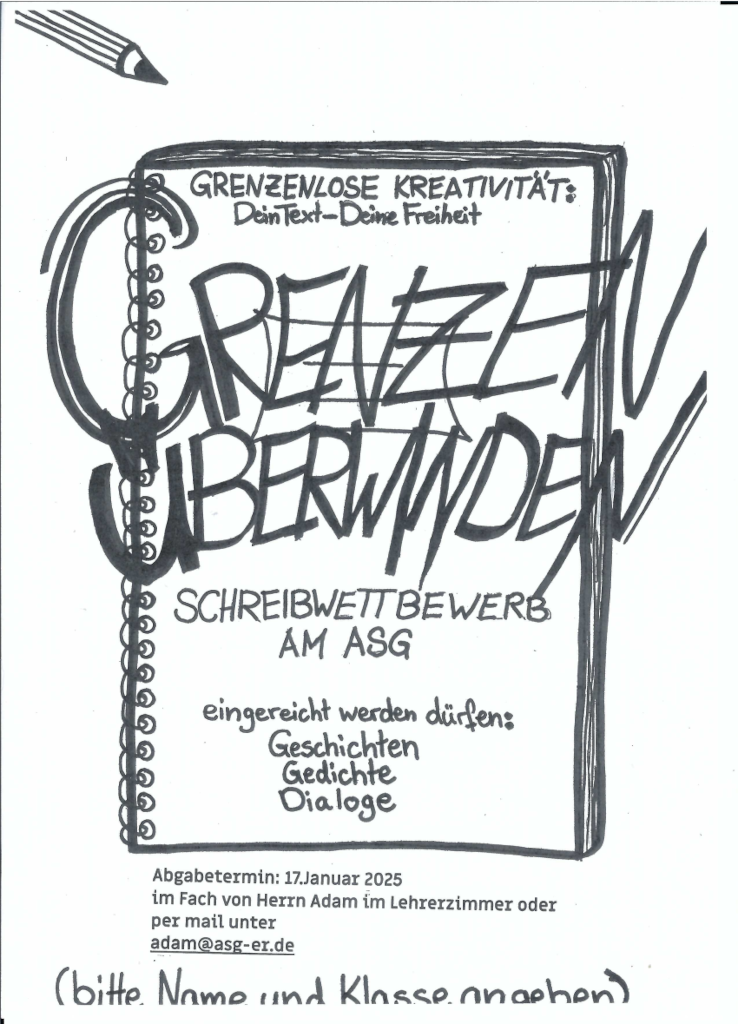 GRENZENLOSE KREATIVITÄT:
Dein Text-Deine Freiheit
GRENZEN
ÜBERWINDEN
SCHREIBWETTBEWERB
AM ASG
eingereicht werden dürfen:
Geschichten
Gedichte
Dialoge
Abgabetermin: 17.Januar 2025
im Fach von Herrn Adam im Lehrerzimmer oder
per mail unter
adam@asg-er.de
(bitte Name und Klasse angeben)